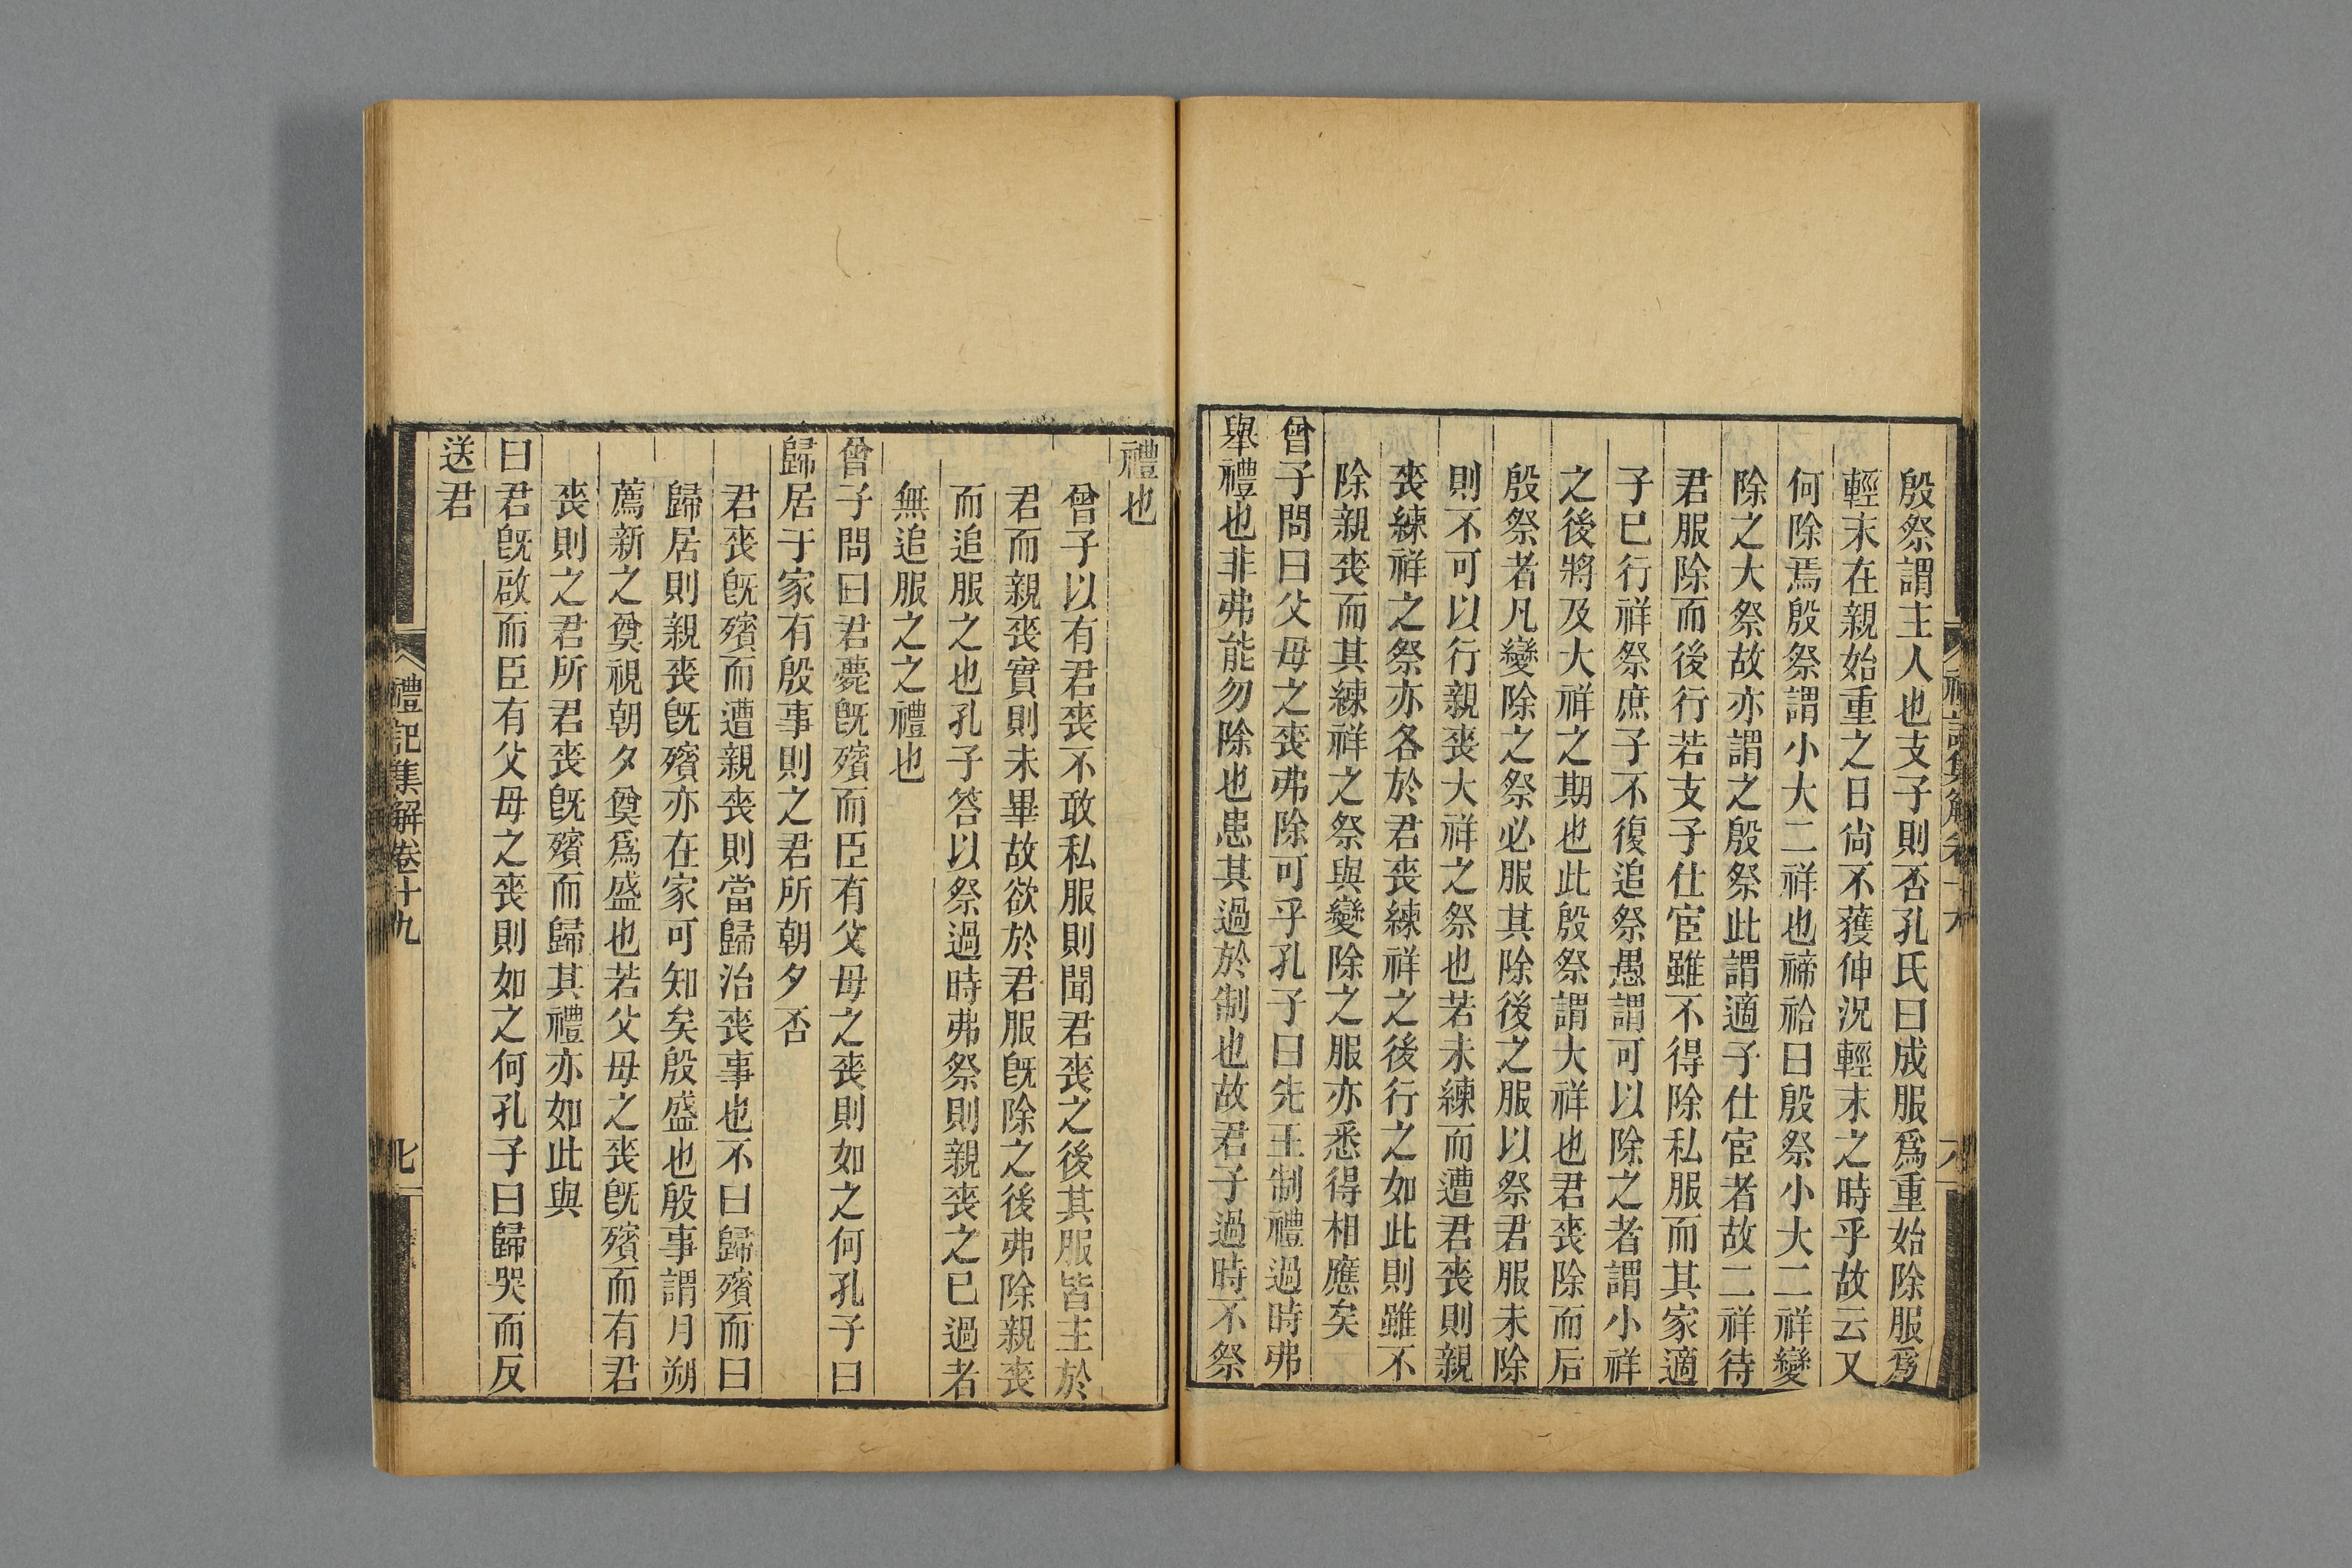 殷祭謂主人也支子則否孔氏曰成服爲重始除服爲
輕末在親始重之日尙不獲伸況輕末之時乎故云又
何除焉殷祭謂小大二祥也禘祫曰殷祭小大二祥變
除之大祭故亦謂之殷祭此謂適子仕宦者故二祥待
君服除而後行若支子仕宦雖不得除私服而其家適
子已行祥祭庶子不復追祭愚謂可以除之者謂小祥
之後將及大祥之期也此殷祭謂大祥也君喪除而后
殷祭者凡變除之祭必服其除後之服以祭君服未除
則不可以行親喪大祥之祭也若未練而遭君喪則親
喪練祥之祭亦各於君喪練祥之後行之如此則雖不
除親喪而其練祥之祭與變除之服亦悉得相應矣
曾子問曰父母之喪弗除可乎孔子曰先王制禮過時弗
舉禮也非弗能勿除也患其過於制也故君子過時不祭
禮也
曾子以有君喪不敢私服則聞君喪之後其服皆主於
君而親喪實則未畢故欲於君服旣除之後弗除親喪
而追服之也孔子答以祭過時弗祭則親喪之已過者
無追服之之禮也
曾子問曰君薨旣殯而臣有父母之喪則如之何孔子曰
歸居于家有殷事則之君所朝夕否
君喪旣殯而遭親喪則當歸治喪事也不曰歸殯而曰
歸居則親喪旣殯亦在家可知矣殷盛也殷事謂月朔
薦新之奠視朝夕奠爲盛也若父母之喪旣殯而有君
喪則之君所君喪旣殯而歸其禮亦如此與
曰君旣啟而臣有父母之喪則如之何孔子曰歸哭而反
送君
禮記集解卷十九